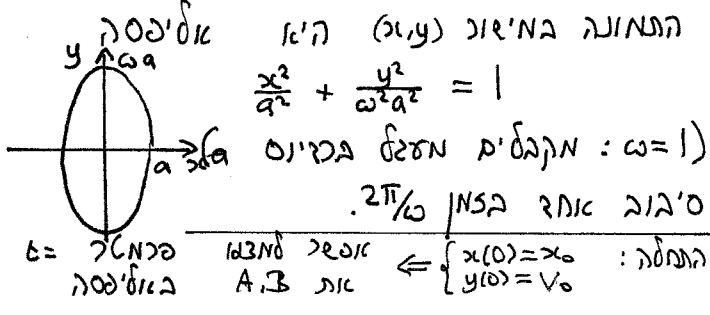 התמונה במישור (x,y) היא אליפסה
y ωa
x²/a² + y²/ω²a² = 1
a x
(ω=1 : מקבלים מעגל ברדיוס a)
סיבוב אחד בזמן 2π/ω.
התחלה: { x(0)=x₀ y(0)=V₀ ⇐ אפשר למצוא את A,B
t = פרמטר באליפסה